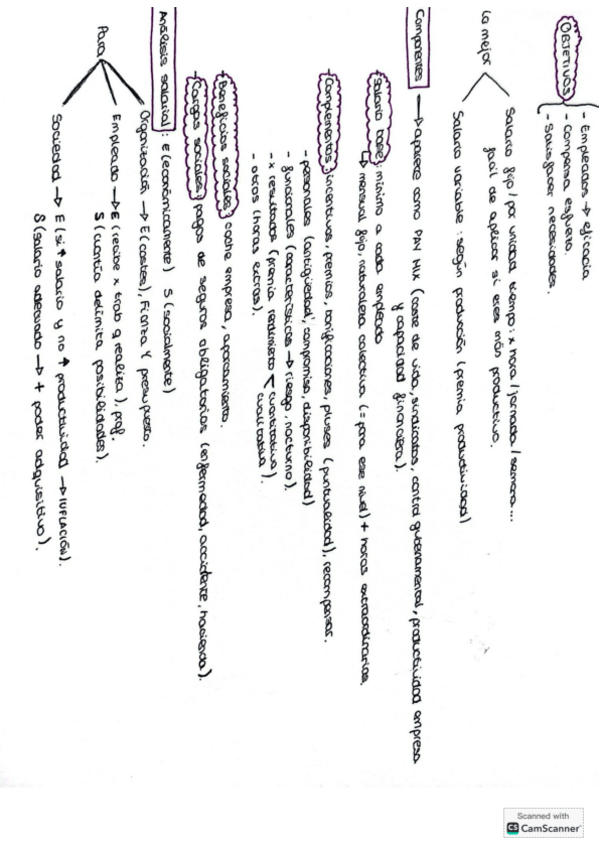 OBJETIVOS
- Empleados → eficacia
- compensa esfuerzo.
- satisfacer necesidades.
Lo mejor
Salario fijo / por unidad tiempo: x hora / jornada / semana...
fácil de aplicar si eres más productivo.
Salario variable: según producción (premia productividad)
Componentes → aparece como (coste de vida, sindicatos, control gubernamental, productividad empresa
y capacidad financiera).
- Salario base: mínimo a cada empleado
↳ mensual fijo, naturaleza colectiva (= para ese nivel) + horas extraordinarias.
- Complementos: incentivos, premios, bonificaciones, pluses (puntualidad), recompensas.
- personales (antigüedad, compromiso, disponibilidad)
- funcionales (características → riesgo, nocturno).
- x resultados (premia rendimiento < cuantitativo
cualitativo).
- otros (horas extras).
- Beneficios sociales: coche empresa, aparcamiento.
- Cargas sociales: pagos de seguros obligatorios (enfermedad, accidente, hacienda).
Análisis salarial: E (económicamente) S (socialmente)
Para
Organización → E (costes), Fianza y presupuesto.
Empleado → E (recibe x trab q realiza), prof.
S (cuantía delimita posibilidades).
Sociedad → E (si ↑ salario y no ↑ productividad → INFLACIÓN).
S (salario adecuado → + poder adquisitivo).
Scanned with
CS CamScanner